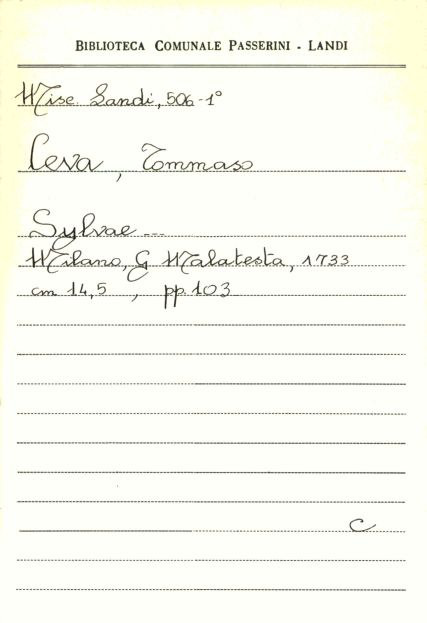 BIBLIOTECA COMUNALE PASSERINI - LANDI
Misc. Landi, 506-1°
Ceva, Tommaso
Sylvae ...
Milano, G Malatesta, 1733
cm 14,5 , pp. 103
C